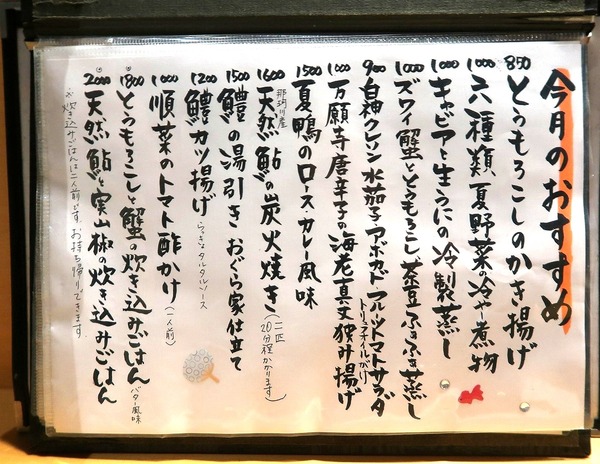 今月のおすすめ
850 とうもろこしのかき揚げ
1000 六種類 夏野菜の冷や煮物
1000 キャビアと生うにの冷製蒸し
1000 ズワイ蟹ととうもろこし 茶豆ふるふる蒸し
900 白神クレソン 水茄子 アボカド フルーツトマトサラダ
トリュフオイルがけ
1000 万願寺唐辛子の海老真丈挟み揚げ
1500 夏鴨のロース・カレー風味
那珂川産
1600 天然鮎の炭火焼き (二匹 20分程かかります)
1500 鱧の湯引き おぐら家仕立て
1200 鱧カツ揚げ らっきょタルタルソース
1000 順菜のトマト酢かけ (一人前)
1800 とうもろこしと蟹の炊き込みごはん バター風味
2000 天然鮎と実山椒の炊き込みごはん
※炊き込みごはんは二人前です。お持ち帰りできます。